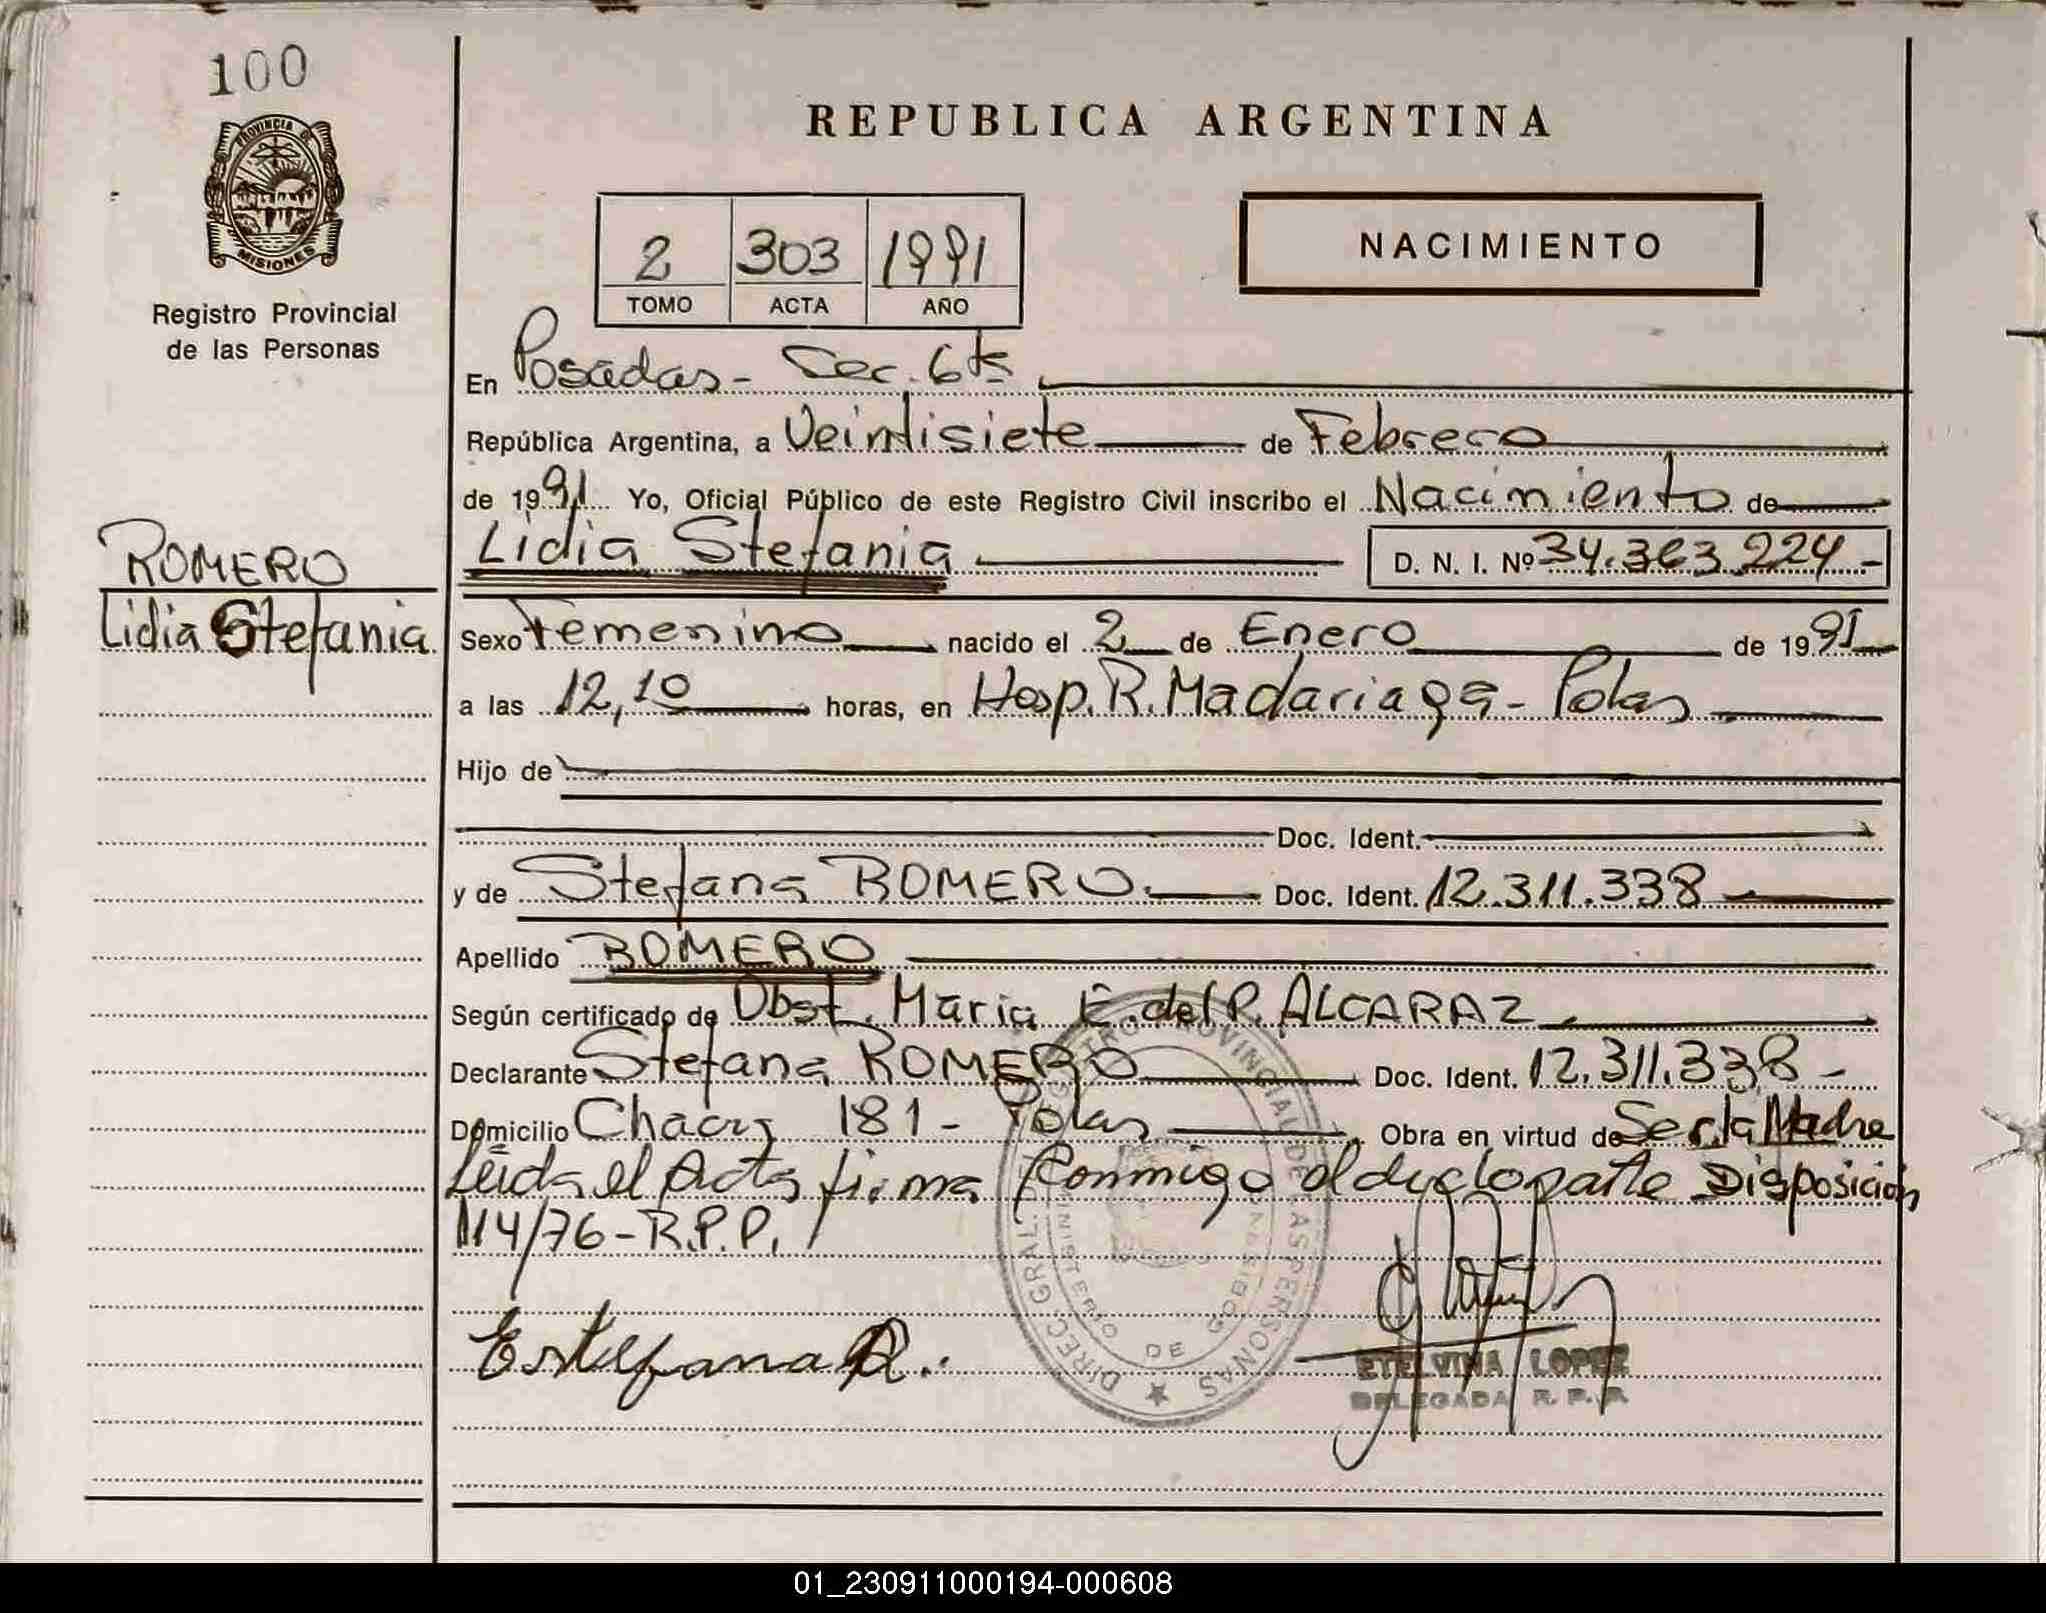 100
PROVINCIA DE
MISIONES
Registro Provincial
de las Personas
ROMERO
Lidia Stefania
REPUBLICA ARGENTINA
2 303 1991
TOMO ACTA AÑO
NACIMIENTO
En Posadas - Sec. 6ta
República Argentina, a Veintisiete de Febrero
de 1991 Yo, Oficial Público de este Registro Civil inscribo el Nacimiento de
Lidia Stefania D. N. I. Nº 34.363.224-
Sexo Femenino nacido el 2 de Enero de 1991
a las 12,10 horas, en Hosp. R. Madariaga - Pdas
Hijo de
Doc. Ident.
y de Stefana ROMERO. Doc. Ident. 12.311.338
Apellido ROMERO
Según certificado de Obst. Maria E. del R. ALCARAZ
Declarante Stefana ROMERO Doc. Ident. 12.311.338 -
Domicilio 181 - Pdas Obra en virtud de Ser la Madre
Leida el Acta firma Conmigo el Disposición
114/76 - R.P.P.
Estefana R.
DIREC. GRAL. REGISTRO PROVINCIAL DE LAS PERSONAS
MINISTERIO DE GOBIERNO
ETELVINA LOPEZ
DELEGADA R. P. P.
01_230911000194-000608